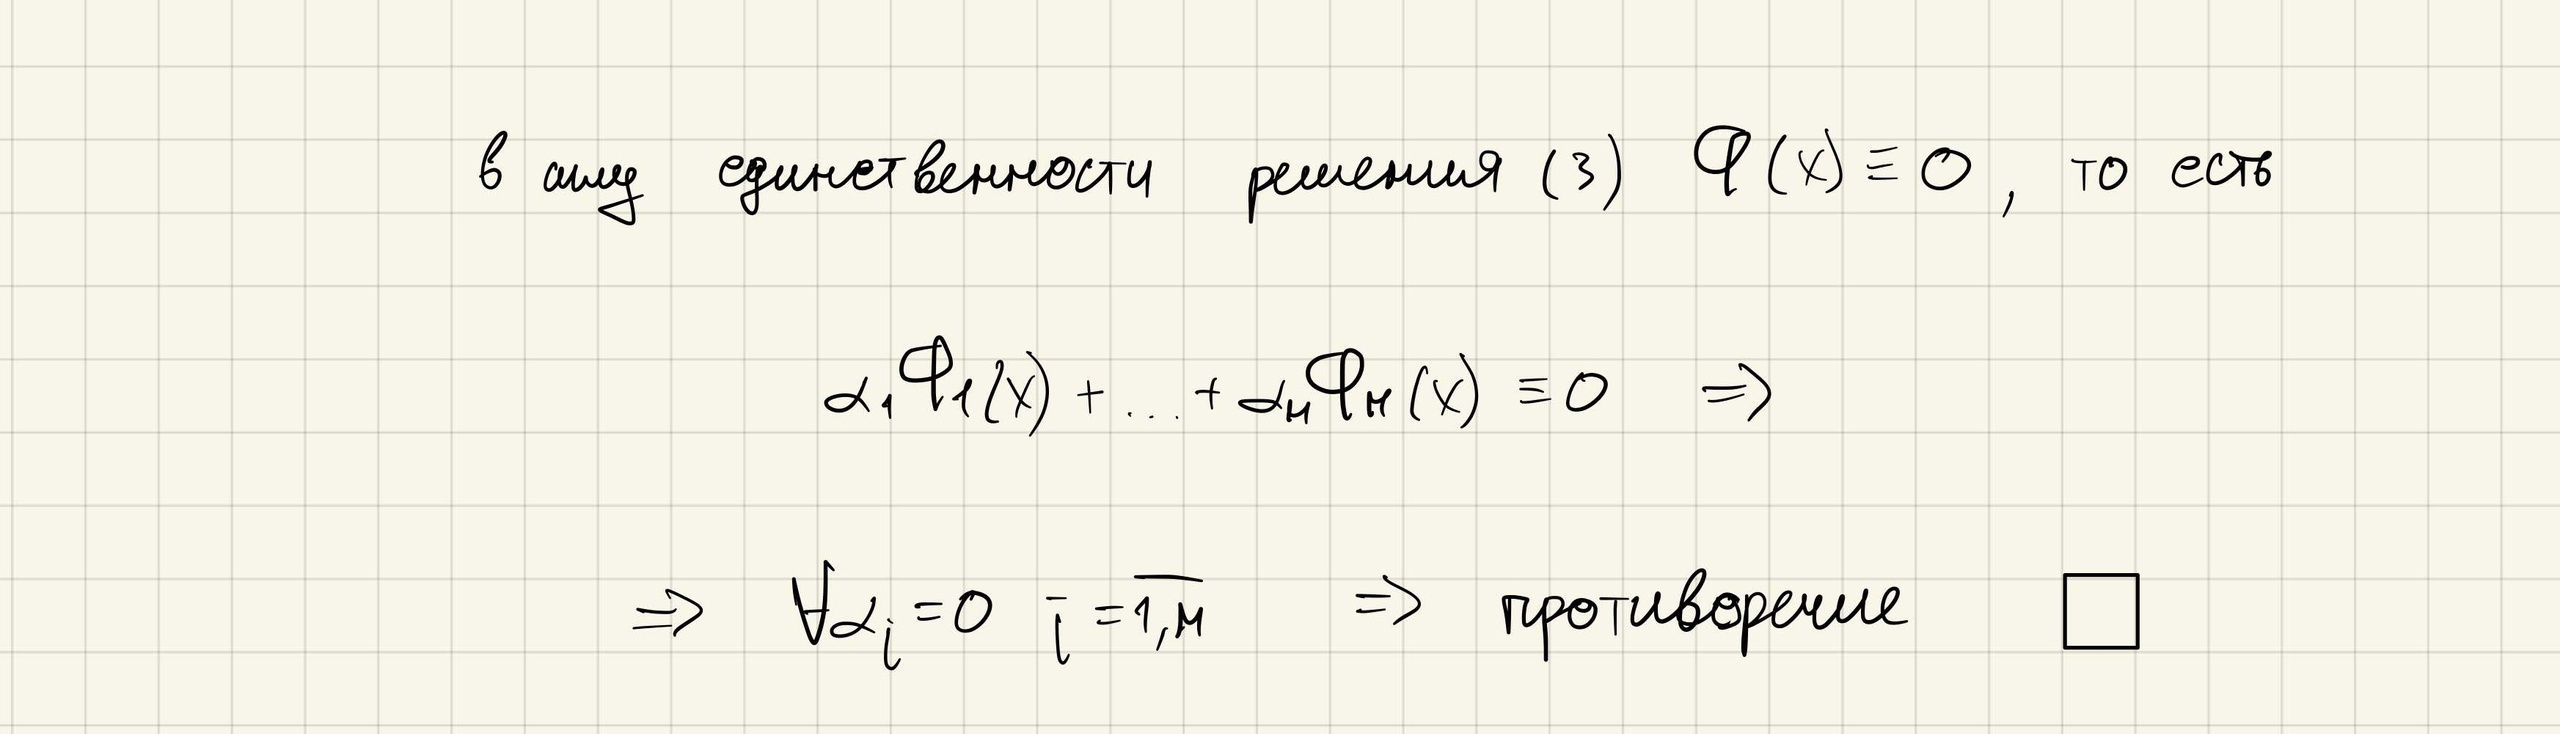 в силу единственности решения (3) φ(x) ≡ 0, то есть
α₁φ₁(x) + ... + αₙφₙ(x) ≡ 0 =>
=> ∀αj = 0 j = 1,n => противоречие □